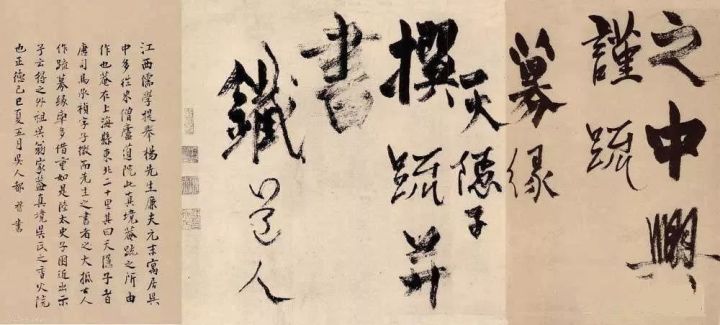 之中興
謹疏
募緣
天隱子
撰疏并
書
鐵心道人
江西儒學提舉楊先生廉夫元末寓居吳
中多往来僧廬道院此真境菴疏之所由
作也菴在上海縣東北二十里其曰天隱子者
唐司馬承禎字子微而先生之書者之大抵古人
作疏募緣率多借重如是陸太史子困近出示
予云得之外祖吳翁家蓋真境吳氏之香火院
也正德己巳夏五月吳人都穆書